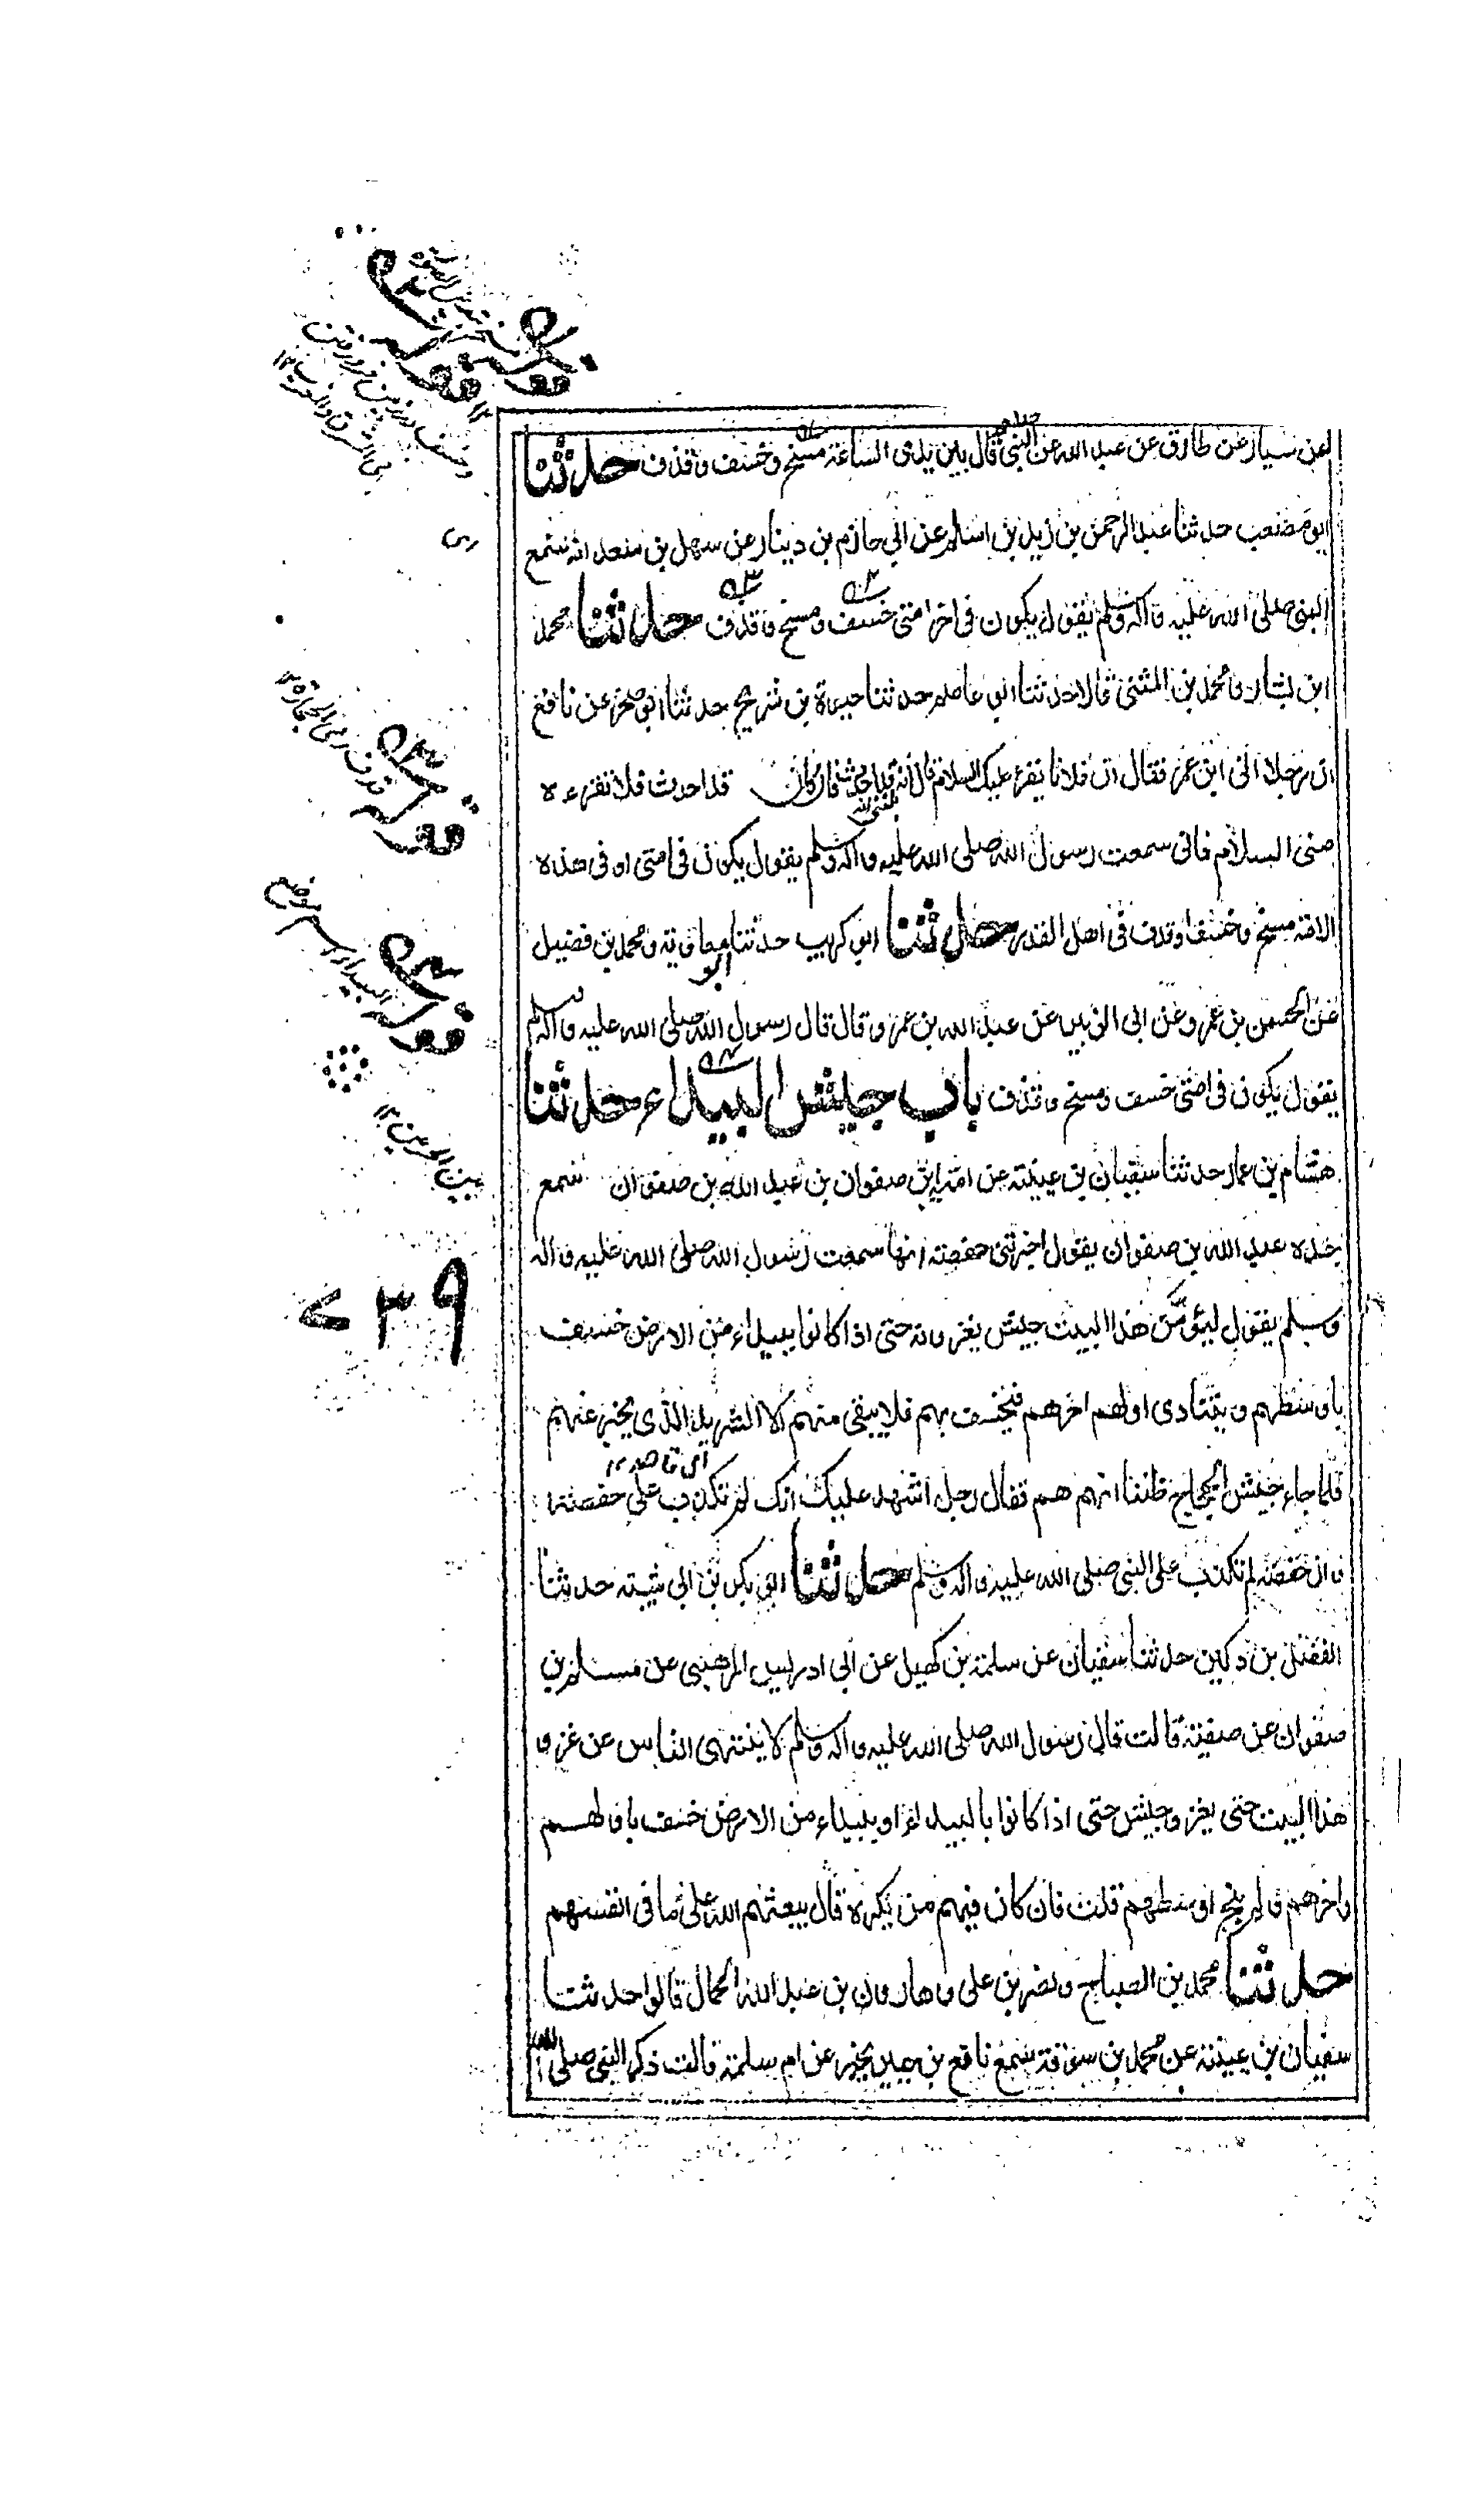 عن سيار عن طارق عن عبد الله عن النبي قال بين يدي الساعة مسخ وخسف وقذف حدثنا
ابو مصعب حدثنا عبد الرحمن بن زيد بن اسلم عن ابي حازم بن دينار عن سهل بن سعد انه سمع
النبي صلى الله عليه واله وسلم يقول يكون في اخر امتي خسف ومسخ وقذف حدثنا محمد
ابن بشار ومحمد بن المثنى قالا حدثنا ابو عاصم حدثنا حيوة بن شريح حدثنا ابو صخر عن نافع
ان رجلا اتى ابن عمر فقال ان فلانا يقرء عليك السلام قال انه بلغني انه قد احدث فان كان قد احدث فلا تقرءه
مني السلام فاني سمعت رسول الله صلى الله عليه واله وسلم يقول يكون في امتي او في هذه
الامة مسخ وخسف وقذف في اهل القدر حدثنا ابو كريب حدثنا ابو معاوية ومحمد بن فضيل
عن الحسن بن عمرو عن ابي الزبير عن عبد الله بن عمرو قال قال رسول الله صلى الله عليه واله وسلم
يقول يكون في امتي خسف ومسخ وقذف باب جيش البيداء حدثنا
هشام بن عمار حدثنا سفيان بن عيينة عن امية بن صفوان بن عبد الله بن صفوان سمع
جده عبد الله بن صفوان يقول اخبرتني حفصة انها سمعت رسول الله صلى الله عليه واله
وسلم يقول ليؤمن هذا البيت جيش يغزونه حتى اذا كانوا ببيداء من الارض خسف
باوسطهم ويتنادى اولهم اخرهم فيخسف بهم فلا يبقى منهم الا الشريد الذي يخبر عنهم
فلما جاء جيش الحجاج ظننا انهم هم فقال رجل اشهد عليك انك لم تكذب على حفصة
وان حفصة لم تكذب على النبي صلى الله عليه واله وسلم حدثنا ابو بكر بن ابي شيبة حدثنا
الفضل بن دكين حدثنا سفيان عن سلمة بن كهيل عن ابي ادريس المرهبي عن مسلم بن
صفوان عن صفية قالت قال رسول الله صلى الله عليه واله وسلم لا ينتهي الناس عن غزو
هذا البيت حتى يغزو جيش حتى اذا كانوا بالبيداء او ببيداء من الارض خسف باولهم
واخرهم ولم ينج اوسطهم قلت فان كان فيهم من يكره قال يبعثهم الله على ما في انفسهم
حدثنا محمد بن الصباح ونصر بن علي وهارون بن عبد الله الحمال قالوا حدثنا
سفيان بن عيينة عن محمد بن سوقة سمع نافع بن جبير يخبر عن ام سلمة قالت ذكر النبي صلى الله
بين الحرمين ١٢
٧٣٩